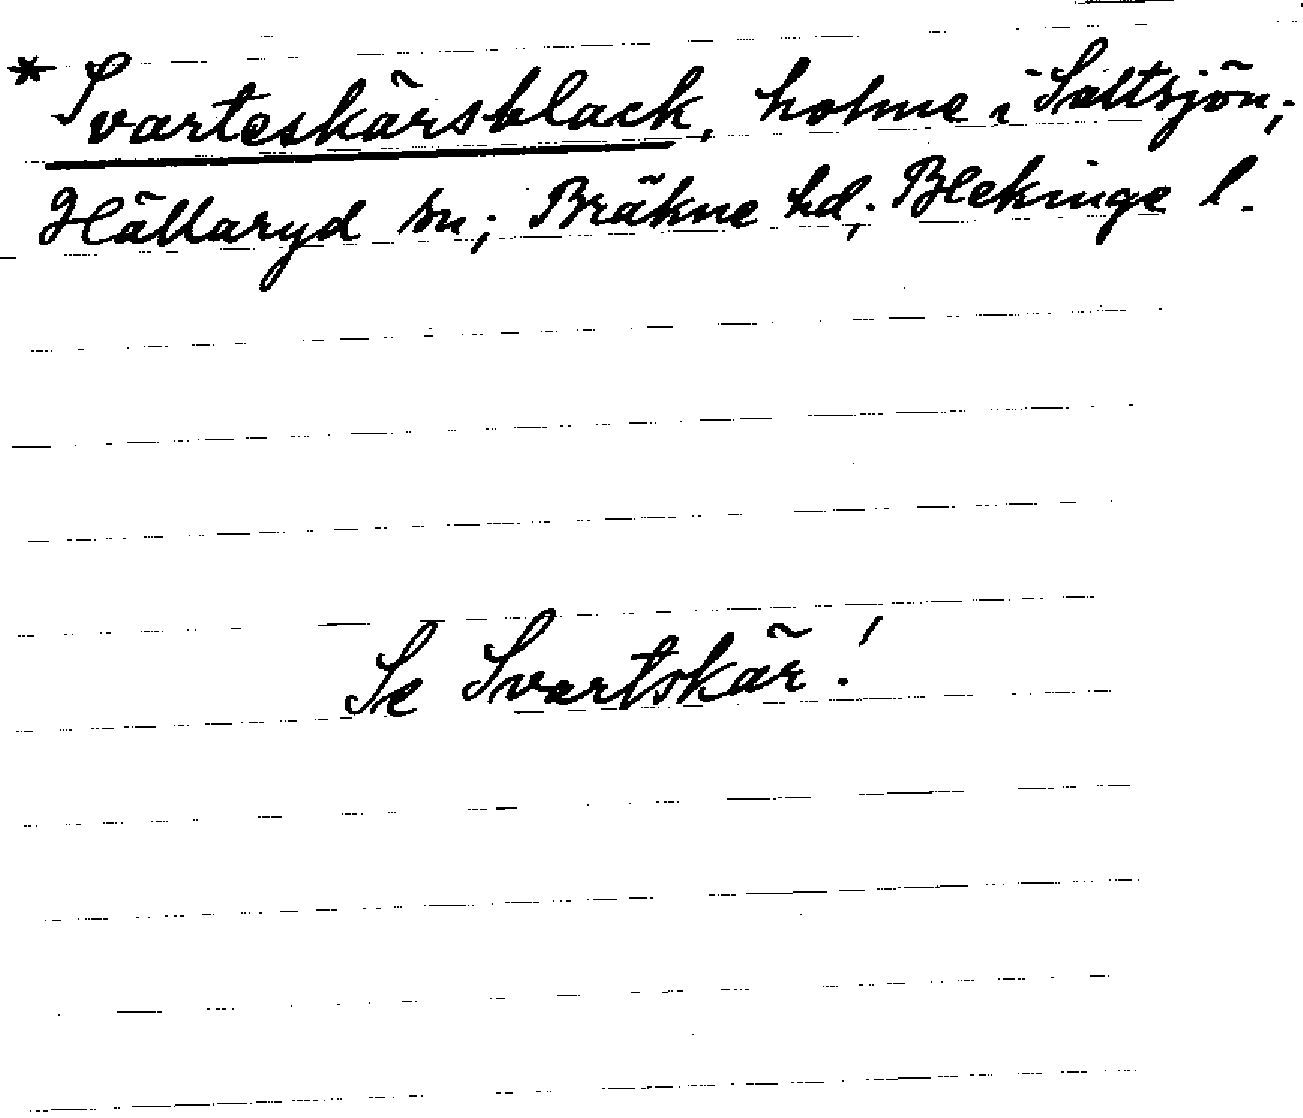 * Svarteskärsblack, holme i Saltsjön;
Hällaryd sn; Bräkne hd; Blekinge l.
Se Svartskär!